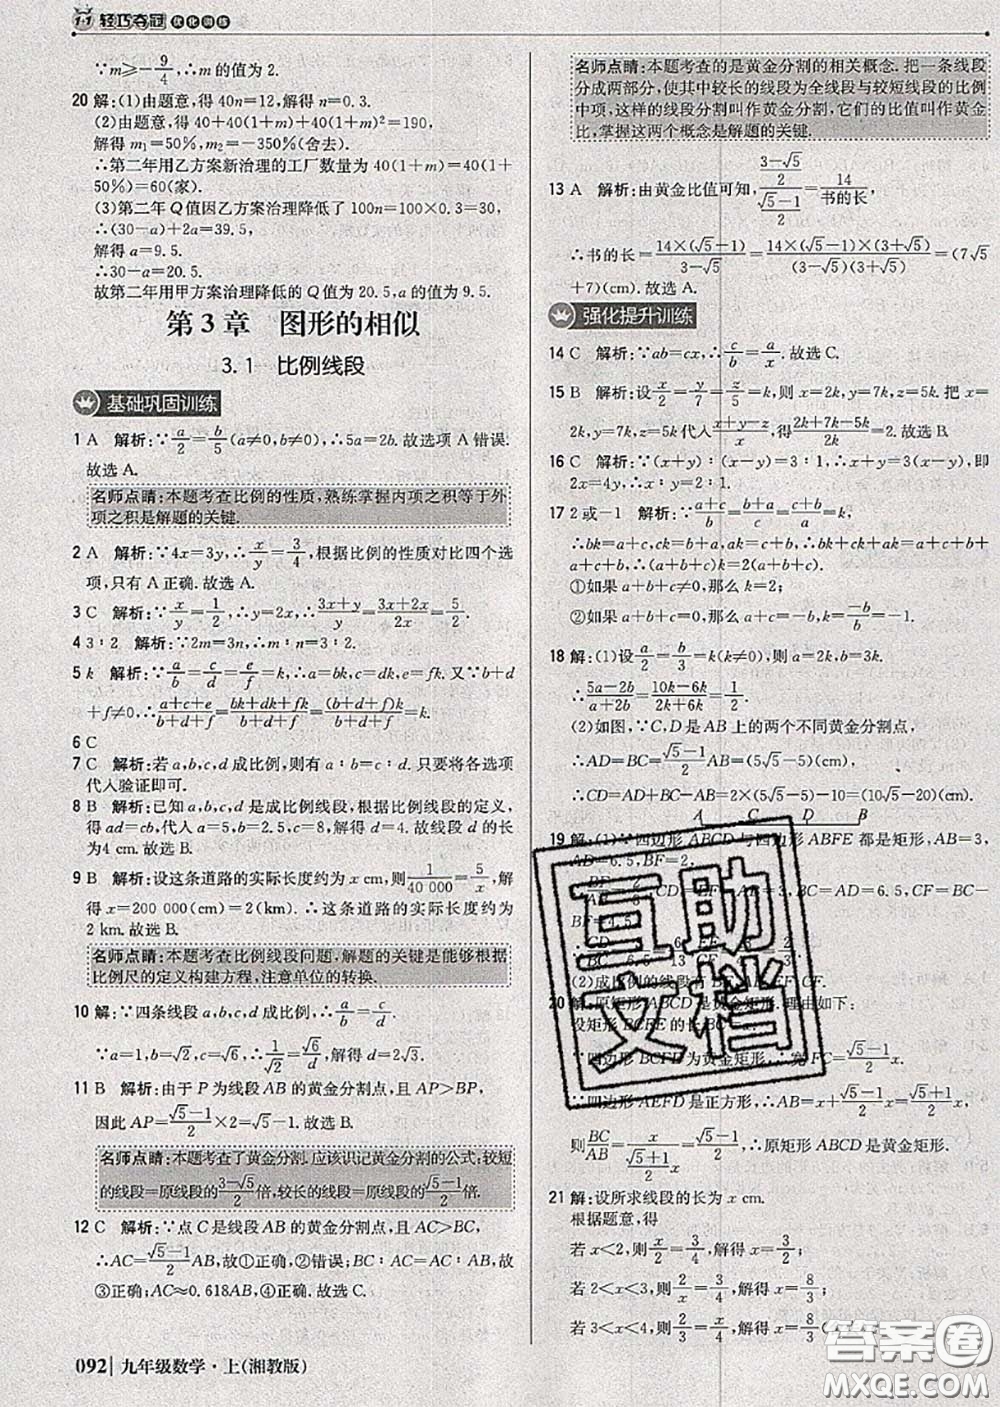 1+1 轻巧夺冠 优化训练
∵m≥-9/4,∴m的值为2.
20 解:(1)由题意,得40n=12,解得n=0.3.
(2)由题意,得40+40(1+m)+40(1+m)²=190,
解得m₁=50%,m₂=-350%(舍去).
∴第二年用乙方案新治理的工厂数量为40(1+m)=40(1+
50%)=60(家).
(3)第二年Q值因乙方案治理降低了100n=100×0.3=30,
∴(30-a)+2a=39.5,
解得a=9.5.
∴30-a=20.5.
故第二年用甲方案治理降低的Q值为20.5,a的值为9.5.
第3章 图形的相似
3.1 比例线段
基础巩固训练
1 A 解析:∵a/2=b/5(a≠0,b≠0),∴5a=2b.故选项A错误.
故选A.
名师点睛:本题考查比例的性质,熟练掌握内项之积等于外
项之积是解题的关键.
2 A 解析:∵4x=3y,∴x/y=3/4,根据比例的性质对比四个选
项,只有A正确.故选A.
3 C 解析:∵x/y=1/2,∴y=2x,∴(3x+y)/y=(3x+2x)/2x=5/2.
4 3∶2 解析:∵2m=3n,∴m∶n=3∶2.
5 k 解析:∵a/b=c/d=e/f=k,∴a=bk,c=dk,e=fk.又∵b+d
+f≠0,∴(a+c+e)/(b+d+f)=(bk+dk+fk)/(b+d+f)=(b+d+f)k/(b+d+f)=k.
6 C
7 C 解析:若a,b,c,d成比例,则有a∶b=c∶d.只要将各选项
代入验证即可.
8 B 解析:已知a,b,c,d是成比例线段,根据比例线段的定义,
得ad=cb,代入a=5,b=2.5,c=8,解得d=4.故线段d的长
为4 cm.故选B.
9 B 解析:设这条道路的实际长度约为x cm,则1/40 000=5/x,解
得x=200 000(cm)=2(km).∴这条道路的实际长度约为
2 km.故选B.
名师点睛:本题考查比例线段问题,解题的关键是能够根据
比例尺的定义构建方程,注意单位的转换.
10 解:∵四条线段a,b,c,d成比例,∴a/b=c/d.
∵a=1,b=√2,c=√6,∴1/√2=√6/d,解得d=2√3.
11 B 解析:由于P为线段AB的黄金分割点,且AP>BP,
因此AP=(√5-1)/2×2=√5-1.故选B.
名师点睛:本题考查了黄金分割.应该识记黄金分割的公式:较短
的线段=原线段的(3-√5)/2倍,较长的线段=原线段的(√5-1)/2倍.
12 C 解析:∵点C是线段AB的黄金分割点,且AC>BC,
∴AC=(√5-1)/2AB,故①正确,②错误;BC∶AC=AC∶AB,故
③正确;AC≈0.618AB,④正确.故选C.
名师点睛:本题考查的是黄金分割的相关概念.把一条线段
分成两部分,使其中较长的线段为全线段与较短线段的比例
中项,这样的线段分割叫作黄金分割,它们的比值叫作黄金
比,掌握这两个概念是解题的关键.
13 A 解析:由黄金比值可知,((3-√5)/2)/((√5-1)/2)=14/书的长,
∴书的长=14×(√5-1)/(3-√5)=14×(√5-1)×(3+√5)/((3-√5)(3+√5))=(7√5
+7)(cm).故选A.
强化提升训练
14 C 解析:∵ab=cx,∴c/b=a/x.故选C.
15 B 解析:设x/2=y/7=z/5=k,则x=2k,y=7k,z=5k.把x=
2k,y=7k,z=5k代入(x+y-z)/x,得(2k+7k-5k)/2k=2.故选B.
16 C 解析:∵(x+y)∶(x-y)=3∶1,∴x+y=3(x-y),即
2x=4y,∴x∶y=2∶1.故选C.
17 2或-1 解析:∵(a+c)/b=(b+c)/a=(a+b)/c=k,
∴bk=a+c,ck=a+b,ak=b+c,∴bk+ck+ak=a+c+b+
a+c+b,∴k(a+b+c)=2(a+b+c).
①如果a+b+c≠0,那么k=2;
②如果a+b+c=0,那么a+c=-b,∴k=-b/b=-1.
18 解:(1)设a/2=b/3=k(k≠0),则a=2k,b=3k.
∴(5a-2b)/(a+2b)=(10k-6k)/(2k+6k)=1/2.
(2)如图,∵C,D是AB上的两个不同黄金分割点,
∴AD=BC=(√5-1)/2AB=(5√5-5)(cm),
∴CD=AD+BC-AB=2×(5√5-5)-10=(10√5-20)(cm).
A C D B
19 解:(1)∵四边形ABCD与四边形ABFE都是矩形,AB=3,
AD=6.5,BF=2,
BC=AD=6.5,CF=BC-
BF=4.5,
20 解:原矩形ABCD是黄金矩形.理由如下:
∵四边形AEFD是正方形,∴AB=x+(√5-1)/2x=(√5+1)/2x,
则BC/AB=x/((√5+1)/2x)=(√5-1)/2,∴原矩形ABCD是黄金矩形.
21 解:设所求线段的长为x cm.
根据题意,得
若x<2,则x/2=2/3,解得x=4/3;
若2<x<3,则2/x=x/3,解得x=√6;
若x>3,则2/3=3/x,解得x=9/2.
互助
文档
答案圈
MXQE.COM
092 九年级数学·上(湘教版)